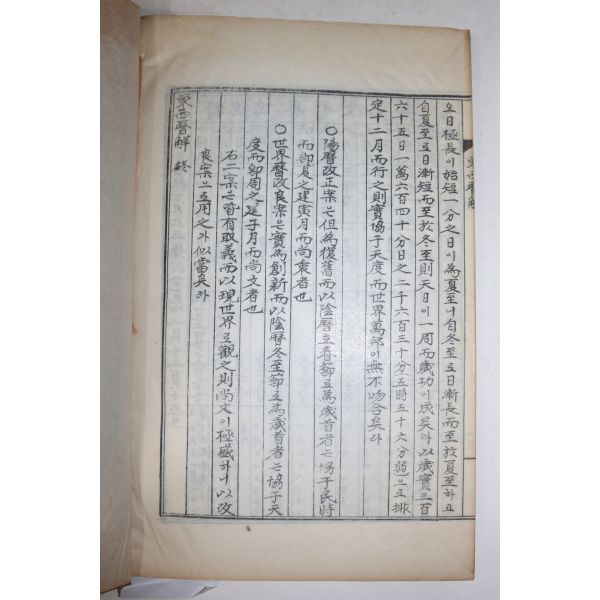 立日極長이始短一分之日이為夏至니自冬至로日漸長而至於夏至하고
自夏至로日漸短而至於冬至則天日이一周而歲功이成矣라以歲實三百
六十五日一萬六百四十分日之二千六百三十分五時五十六分弱으로排
定十二月而行之則實協于天度而世界萬邦이無不吻合矣라
○陽曆改正案은但為復舊而以陰曆立春節로為歲首者는協于民時
而卽夏之建寅月而尚衷者也
○世界曆改良案은實為創新而以陰曆冬至節로為歲首者는協于天
度而卽周之建子月而尚文者也
右二案은皆有取義而以現世界로觀之則尚文이極盛하니以改
良案으로用之가似當矣라
東西曆解 終
東西曆解